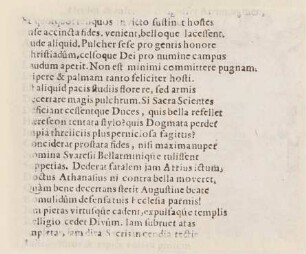 quos invicto sustinet hostes
accincta fides. venient, belloque lacessent.
ude aliquid. Pulcher sese pro gentis honore
hristiadûm, celsoque Dei pro numine campus
audum aperit. Non est minimi committere pugnam,
ipere & palmam tanto feliciter hosti.
aliquid pacis studiis florere, sed armis
ecertare magis pulchrum. Si Sacra Scientes
eficiant cessentque Duces, quis bella refellet
ereseon contrata stylo? quis Dogmata perdet
mpia threiciis plus perniciosa sagittis?
onciderat prostrata fides, nisi maxima nuper
nomina Svaresii Bellarminique tulissent
uppetias. Dederat fatalem jam Arrius ictum,
octus Athanasius ni contra bella moveret,
quàm bene decertans sterit Augustine beate
omulidûm defensaturis Ecclesia parmis!
am pietas virtusque cadent, expulsaque templis
elligio cedet Divûm. Iam subruet atas
mpietas, jam dira Sacris incendia tectis